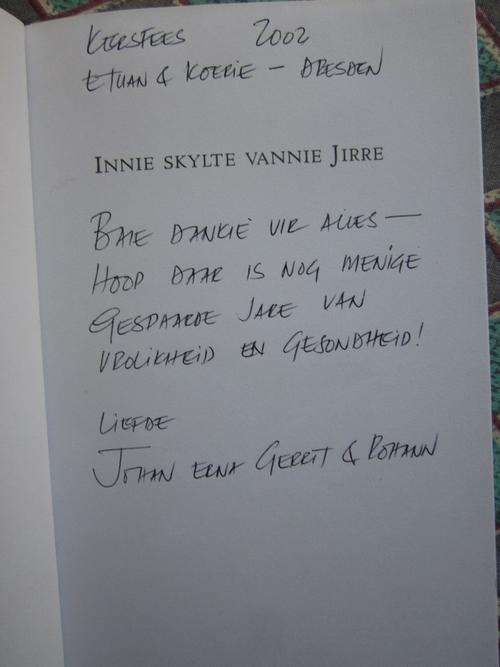 KERSFEES 2002
ETTIAN & KOERIE - DRESDEN
INNIE SKYLTE VANNIE JIRRE
BAIE DANKIE VIR ALLES —
HOOP DAAR IS NOG MENIGE
GESPAARDE JARE VAN
VROLIKHEID EN GESONDHEID!
LIEFDE
JOHAN ERNA GERRIT & ROHANN